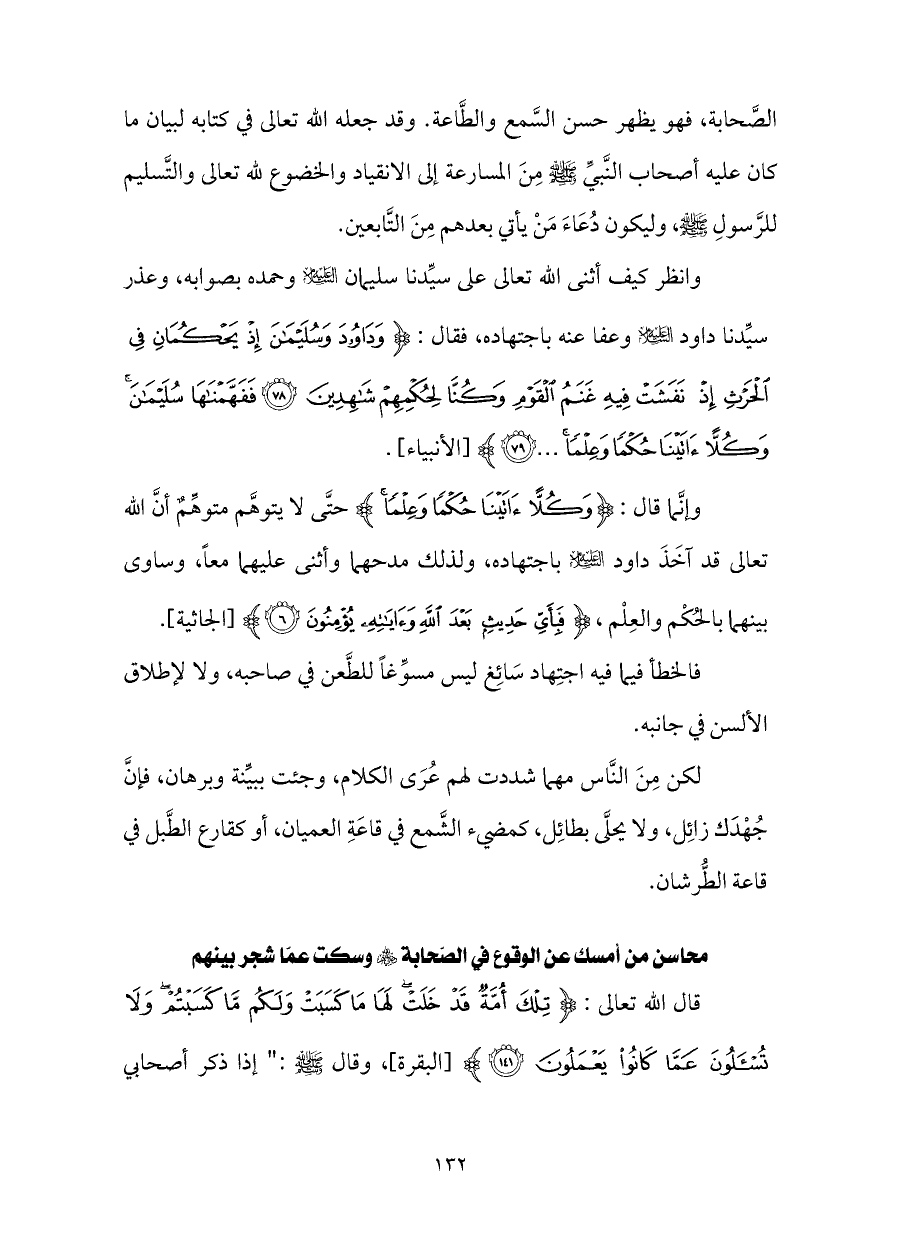 الصَّحابة، فهو يظهر حسن السَّمع والطَّاعة. وقد جعله الله تعالى في كتابه لبيان ما
كان عليه أصحاب النَّبيِّ ﷺ مِنَ المسارعة إلى الانقياد والخضوع لله تعالى والتَّسليم
للرَّسولِ ﷺ، وليكون دُعَاءَ مَنْ يأتي بعدهم مِنَ التَّابعين.
وانظر كيف أثنى الله تعالى على سيِّدنا سليمان عليه السلام وحمده بصوابه، وعذر
سيِّدنا داود عليه السلام وعفا عنه باجتهاده، فقال : ﴿ وَدَاوُۥدَ وَسُلَيْمَٰنَ إِذْ يَحْكُمَانِ فِى
ٱلْحَرْثِ إِذْ نَفَشَتْ فِيهِ غَنَمُ ٱلْقَوْمِ وَكُنَّا لِحُكْمِهِمْ شَٰهِدِينَ ٧٨ فَفَهَّمْنَٰهَا سُلَيْمَٰنَۚ
وَكُلًّا ءَاتَيْنَا حُكْمًا وَعِلْمًاۚ ...٧٩ ﴾ [الأنبياء] .
وإنَّما قال : ﴿وَكُلًّا ءَاتَيْنَا حُكْمًا وَعِلْمًاۚ ﴾ حتَّى لا يتوهَّم متوهِّمٌ أنَّ الله
تعالى قد آخَذَ داود عليه السلام باجتهاده، ولذلك مدحهما وأثنى عليهما معاً، وساوى
بينهما بالحُكْم والعِلْم ، ﴿ فَبِأَىِّ حَدِيثٍۭ بَعْدَ ٱللَّهِ وَءَايَٰتِهِۦ يُؤْمِنُونَ ٦ ﴾ [الجاثية].
فالخطأ فيما فيه اجتِهاد سَائِغ ليس مسوِّغاً للطَّعن في صاحبه، ولا لإطلاق
الألسن في جانبه.
لكن مِنَ النَّاس مهما شددت لهم عُرَى الكلام، وجئت ببيِّنة وبرهان، فإنَّ
جُهْدَك زائِل، ولا يحلَّى بطائِل، كمضيء الشَّمع في قاعَةِ العميان، أو كقارع الطَّبل في
قاعة الطُّرشان.
محاسن من أمسك عن الوقوع في الصّحابة رضي الله عنهم وسكت عمّا شجر بينهم
قال الله تعالى : ﴿ تِلْكَ أُمَّةٌ قَدْ خَلَتْۖ لَهَا مَا كَسَبَتْ وَلَكُم مَّا كَسَبْتُمْۖ وَلَا
تُسْـَٔلُونَ عَمَّا كَانُوا۟ يَعْمَلُونَ ١٤١ ﴾ [البقرة]، وقال ﷺ :" إذا ذكر أصحابي
١٣٢